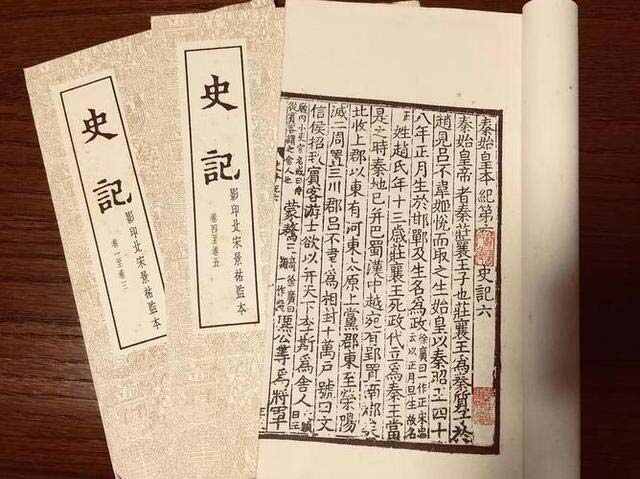 史記
影印北宋景祐監本
卷一至卷三
史記
影印北宋景祐監本
卷四至卷五
秦始皇本紀第六 史記六
秦始皇帝者秦莊襄王子也莊襄王為秦質子於
趙見呂不韋姬悅而取之生始皇以秦昭王四十
八年正月生於邯鄲及生名為政徐廣曰一作正宋忠云以正月旦生故名
姓趙氏年十三歲莊襄王死政代立為秦王當
是之時秦地已并巴蜀漢中越宛有郢置南郡
北收上郡以東有河東太原上黨郡東至滎陽
滅二周置三川郡呂不韋為相封十萬戶號曰文
信侯招致賓客游士欲以并天下李斯為舍人
廄內小吏官名或曰侍從賓客謂之舍人也蒙驁 徐廣曰一作 公等為將軍